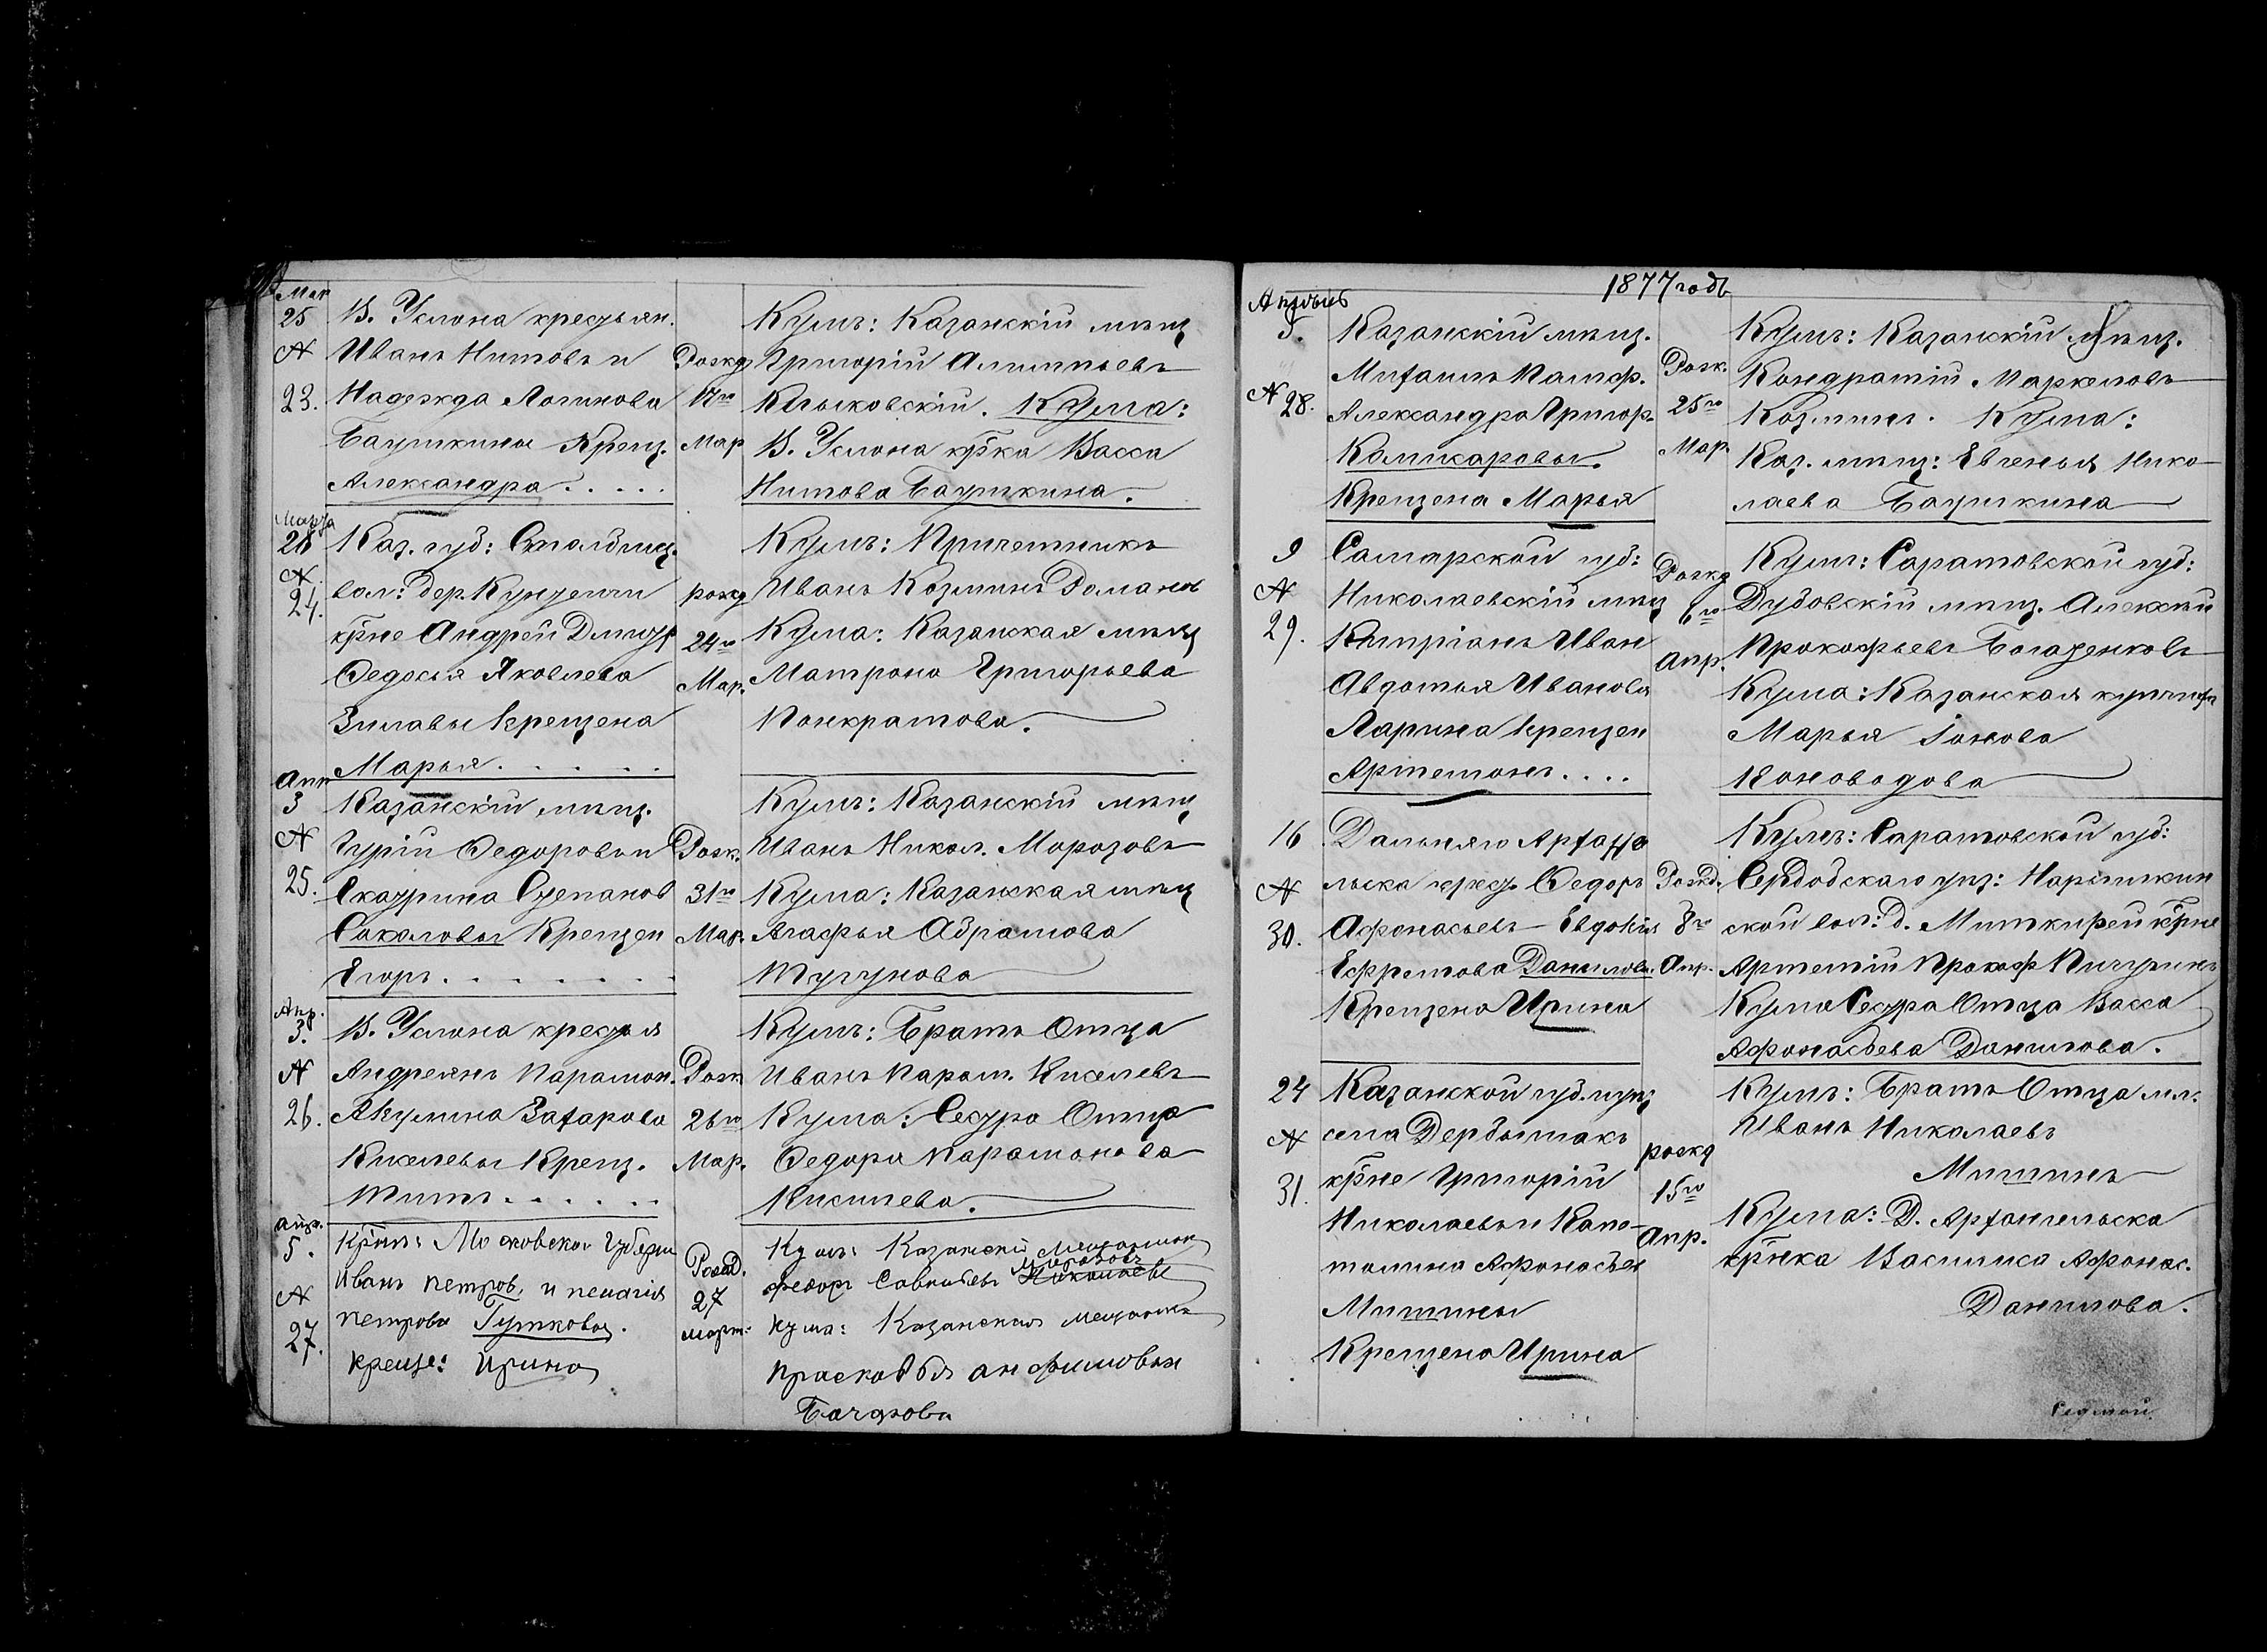 Мар
25
№
23.
В. Услона крестьян.
Иванъ Титовъ и
Надежда Логинова
Батушкины Крещ.
Александра . . . . .
Рожд
17го
Мар
Кумъ: Казанскій мѣщ
Григорій Алимпьевъ
Клыковскій. Кума:
В. Услона кр̃ка Васса
Титова Батушкина.
Марта
28
№
24.
Каз. губ:
вол: дер.
кр̃не Андрей Дмитр
Федосья Яковлева
Зиловы Крещена
Марья . . . . . .
рожд
24го
Мар.
Кумъ: Причетникъ
Иванъ Козминъ Романов
Кума: Казанская мѣщ
Матрона Григорьева
Понкратова.
Апр
3
№
25.
Казанскій мѣщ.
Гурій Федоровъ и
Екатерина Степанов
Соколовы Крещен
Егоръ . . . . . . . .
Рожд.
31го
Мар.
Кумъ: Казанскій мѣщ
Иванъ Никол. Морозовъ
Кума: Казанская мѣщ
Агафья Абрамова
Тугунова
Апр.
3.
№
26.
В. Услона крестья
Андреянъ Парамон.
Акулина Захарова
Киселевы Крещ.
Титъ . . . . . .
Рожд
26го
Мар.
Кумъ: Братъ Отца
Иванъ Парам. Киселевъ
Кума: Сестра Отца
Федора Парамонова
Киселева.
апр.
5.
№
27.
Кр̃нъ: Московской Губерни
Иванъ Петров, и пелагія
петрова Гутковы.
креще: Ирина
Рожд.
27
март.
Кумъ: Казанскій Мещанин
Морозовъ
федоръ Савельевъ Николаевъ
кума: Казанская мещанка
прасковья анфимовая
Бачарова
1877 годъ
Апрѣль
5.
№ 28.
Казанскій мѣщ.
Михаилъ Памф.
Александра Григор.
Комисаровы.
Крещена Марья
Рожд.
25го
Мар.
Кумъ: Казанскій мѣщ.
Кондратій Маркеловъ
Козминъ. Кума:
Каз. мѣщ: Евгенья Нико
лаева Батушкина
9
№
29.
Самарской губ:
Николаевскій мѣщ
Кипріанъ Иван
Авдотья Иванова
Ларина Крещен
Артемонъ . . . .
Рожд
6го
Апр.
Кумъ: Саратовской губ:
Дубовскій мѣщ. Алексѣй
Прокофьевъ Богаденковъ
Кума: Казанская купчиха
Марья Іонова
Коноводова
16
№
30.
Дальняго Арханге
льска крест. Федоръ
Афонасьевъ Евдокія
Ефремова Данилов.
Крещена Ирина
Рожд.
8го
Апр.
Кумъ: Саратовской губ:
Сердобскаго уѣз: Нарышкин
ской вол: д. Миткирей кр̃не
Артемій Прокоф Пичугинъ
Кума Сестра Отца Васса
Афонасьева Данилова.
24
№
31.
Казанской губ. и уѣз
села Дербышакъ
кр̃не Григорій
Николаевъ и Капе
толина Афонасьев
Мишины
Крещена Ирина
рожд
15го
Апр.
Кумъ: Братъ Отца мл.
Иванъ Николаевъ
Мишинъ
Кума: Д. Архангельска
кр̃нка Василиса Афонас.
Данилова.
Седмой.